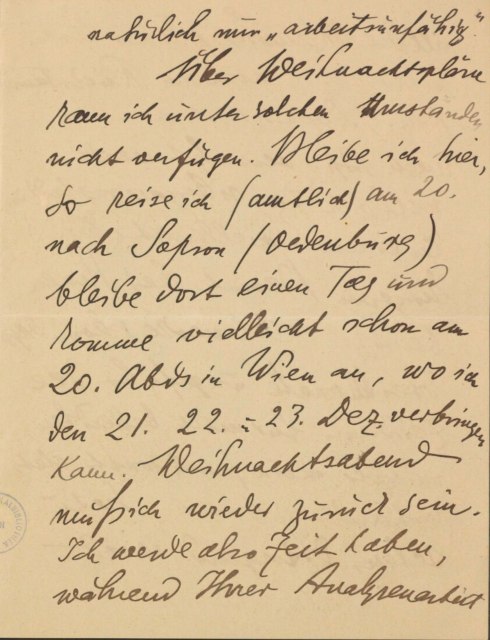 natürlich nun „arbeitsunfähig".
Über Weihnachtspläne
kann ich unter solchen Umständen
nicht verfügen. Bleibe ich hier,
so reise ich (amtlich) am 20.
nach Sopron (Oedenburg)
bleibe dort einen Tag und
komme vielleicht schon am
20. Abds in Wien an, wo ich
den 21. 22. – 23. Dez. verbringen
kann. Weihnachtsabend
muß ich wieder zurück sein.
Ich werde also Zeit haben,
während Ihrer Analysenarbeit